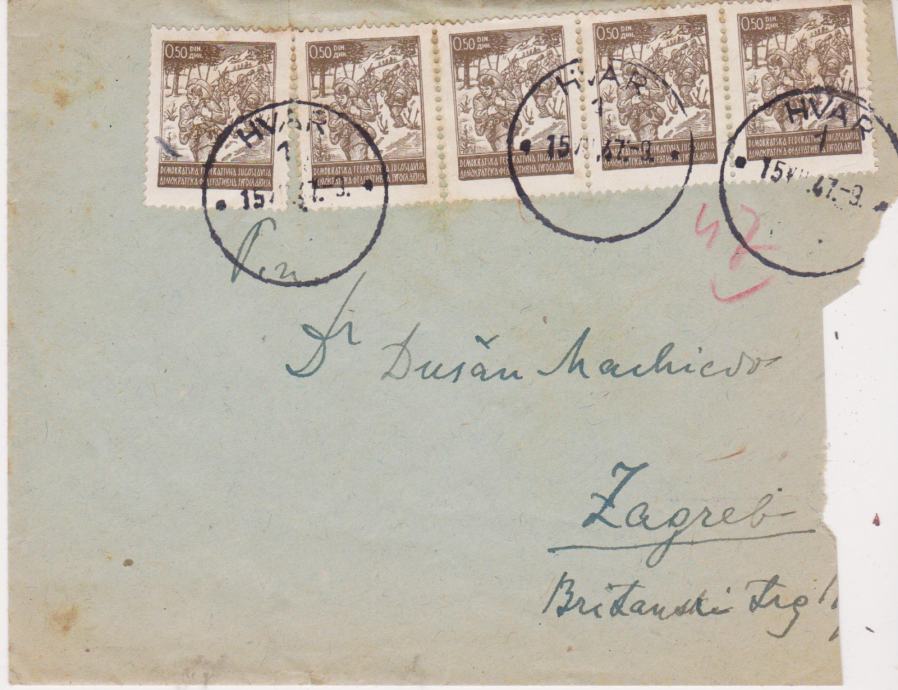 0.50 DIN. ДИН. 0.50 DIN. ДИН. 0.50 DIN. ДИН. 0.50 DIN. ДИН. 0.50 DIN. ДИН.
HVAR HVAR HVAR
1 1 1
15 47.-8. 15 47.-8. 15 47.-8.
DEMOKRATSKA FEDERATIVNA JUGOSLAVIJA DEMOKRATSKA FEDERATIVNA JUGOSLAVIJA DEMOKRATSKA FEDERATIVNA JUGOSLAVIJA DEMOKRATSKA FEDERATIVNA JUGOSLAVIJA DEMOKRATSKA FEDERATIVNA JUGOSLAVIJA
ДЕМОКРАТСКА ФЕДЕРАТИВНА ЈУГОСЛАВИЈА ДЕМОКРАТСКА ФЕДЕРАТИВНА ЈУГОСЛАВИЈА ДЕМОКРАТСКА ФЕДЕРАТИВНА ЈУГОСЛАВИЈА ДЕМОКРАТСКА ФЕДЕРАТИВНА ЈУГОСЛАВИЈА ДЕМОКРАТСКА ФЕДЕРАТИВНА ЈУГОСЛАВИЈА
Dr Dušan Machiedo
Zagreb
Britanski trg